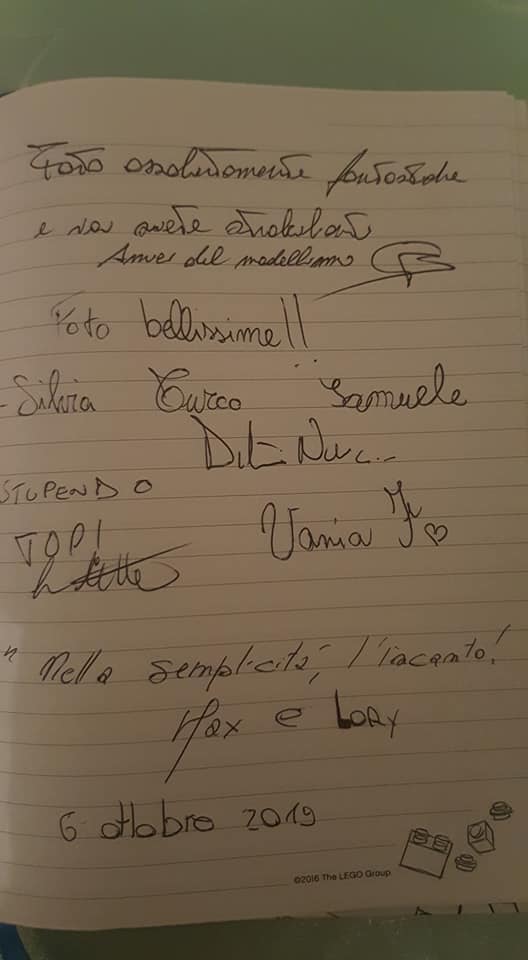 Foto assolutamente fantastiche
e voi avete
Amici del modellismo
Foto bellissime!!
- Silvia Turco Samuele
STUPENDO
TOP!
Vania
"Nella semplicità, l'incanto!
Max e Lory
6 ottobre 2019
©2016 The LEGO Group